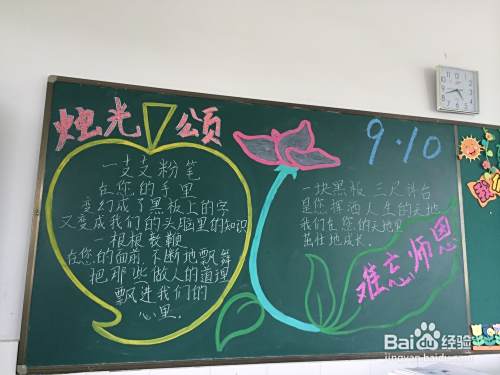 烛光颂
9·10
一支支粉笔
在您的手里
变幻成了黑板上的字
又变成我们的头脑里的知识
一根根教鞭
在您的面前,不断地飘舞
把那些做人的道理
飘进我们的
心里.
一块黑板 三尺讲台
是您挥洒人生的天地
我们在您的天地里
茁壮地成长.
难忘师恩
Baidu经验
jingyan.baidu.com